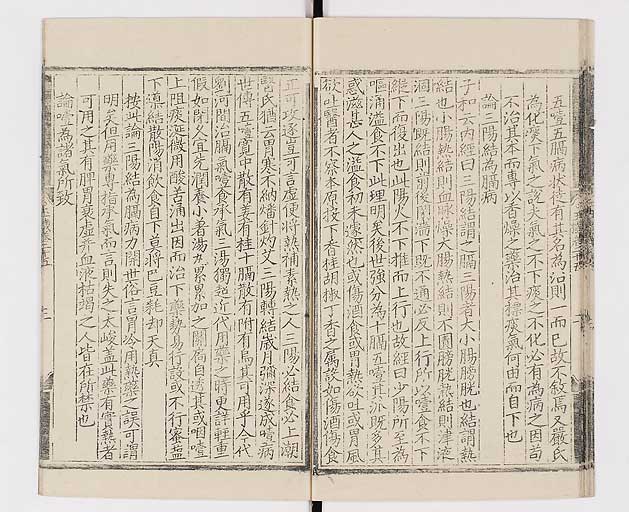 五噎五膈病狀徒有其名為治則一而已故不敘焉又嚴氏
為化痰下氣之說夫氣之不下痰之不化必有為病之因苟
不治其本而專以香燥之藥治其標痰氣何由而自下也
論三陽結為膈病
子和云內經曰三陽結謂之膈三陽者大小腸膀胱也結謂熱
結也小腸熱結則血脈燥大腸熱結則不圊膀胱熱結則津液
涸三陽既結則前後閉澀下既不通必反上行所以噎食不下
縱下而復出也此陽火不下推而上行也故經曰少陽所至為
嘔涌溢食不下此理明矣後世強分為十膈五噎其派既多其
惑滋甚人之溢食初未遽然也或傷酒食或胃熱欲吐或胃風
欲吐醫者不察本原投下香桂胡椒丁香之屬設如傷酒傷食
正可攻逐豈可言虛便將熱補素熱之人三陽必結食必上潮
醫氏猶云胃寒不納燔針灼艾三陽轉結歲月彌深遂成噎病
世傳五噎寬中散有薑有桂十膈散有附有烏其可用乎今代
劉河間治膈氣噎食承氣三湯獨超近代用藥之時更詳輕重
假如閉久宜先潤養小著湯丸累累加之關扃自透其或咽噎
上阻痰涎微用酸苦涌出因而治下藥勢易行設或不行蜜鹽
下導結散陽消飲食自下莫將巴豆耗却天真
按此論三陽結為膈病力闢世俗言胃冷用熱藥之誤可謂
明矣但用藥專指承氣而言則失之太峻蓋此藥有實熱者
可用之其有脾胃衰虛并血液枯竭之人皆在所禁也
論噎為諸氣所致